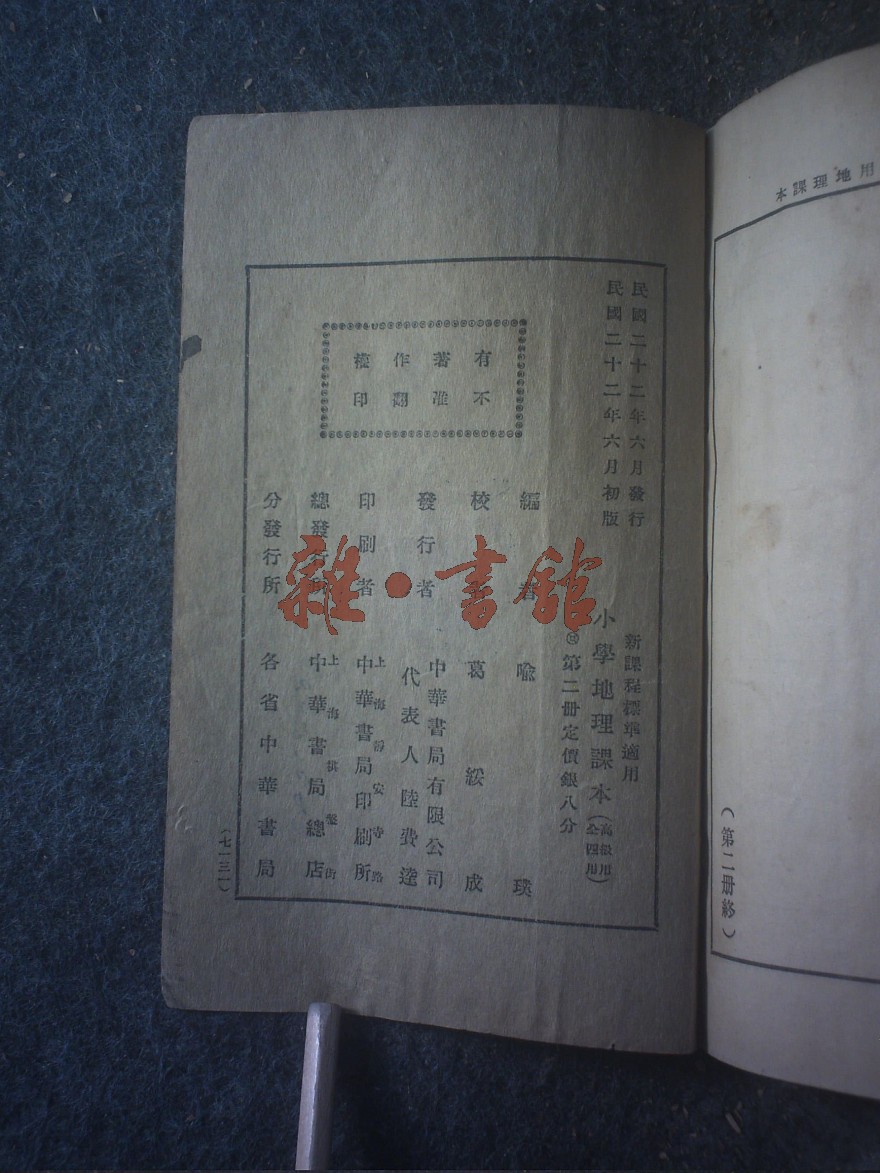 用地理課本
(第二册終)
民國二十二年六月發行
民國二十二年六月初版
新課程標準適用
小學地理課本(高級用
第二册定價銀八分
有著作權
不准翻印
編者 喩璞
校者 葛綏成
發行者 中華書局有限公司
代表人陸費逵
印刷者 上海靜安寺路
中華書局印刷所
總發行所 上海棋盤街
中華書局總店
分發行所 各省中華書局
(七一三一)
雜·書館